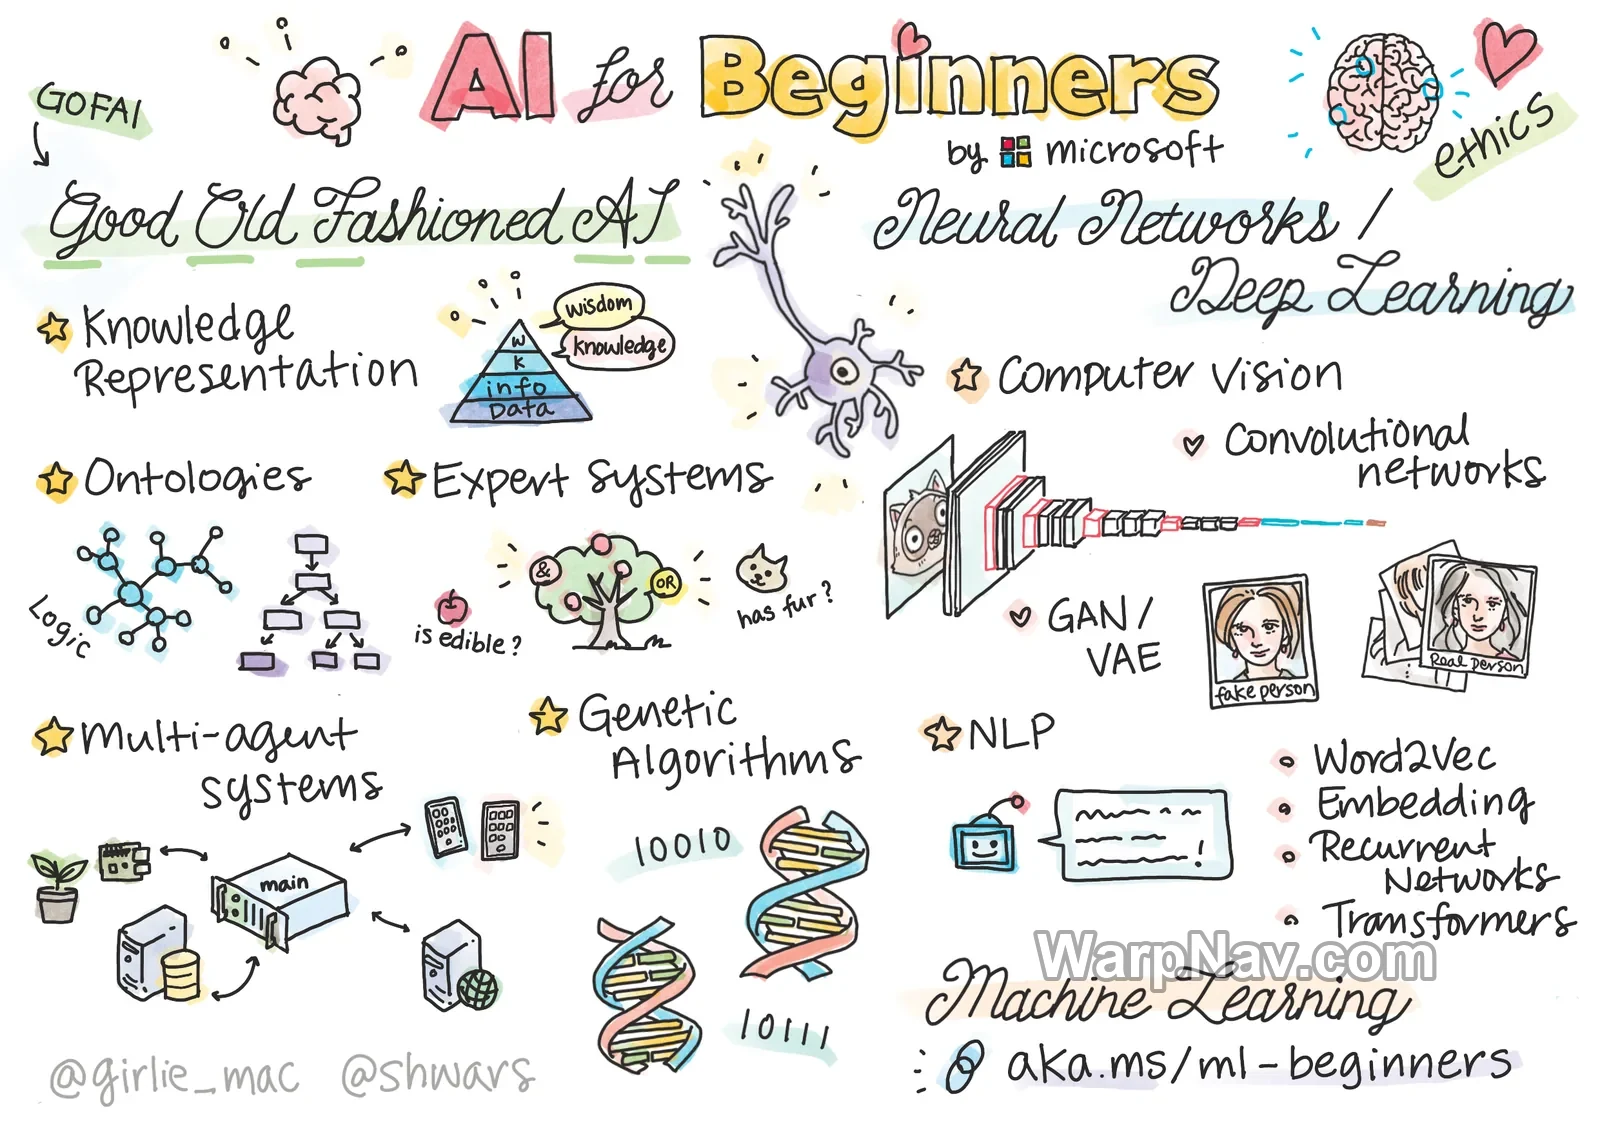 AI for Beginners
by Microsoft
GOFAI
Good Old Fashioned AI
ethics
Neural Networks /
Deep Learning
Knowledge
Representation
wisdom
knowledge
W
K
info
Data
Ontologies
Logic
Expert Systems
&
OR
is edible?
has fur?
Multi-agent
systems
main
Genetic
Algorithms
10010
10111
Computer Vision
Convolutional
networks
GAN /
VAE
fake person
Real person
NLP
Word2Vec
Embedding
Recurrent
Networks
Transformers
WarpNav.com
Machine Learning
aka.ms/ml-beginners
@girlie_mac @shwars